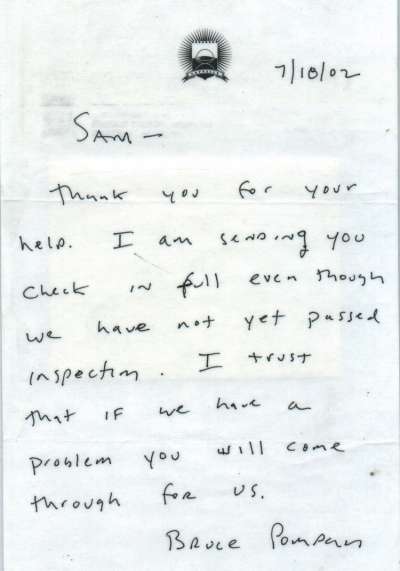 7/18/02
SAM —
Thank you for your
help. I am sending you
check in full even though
we have not yet passed
inspection. I trust
that if we have a
problem you will come
through for us.
Bruce